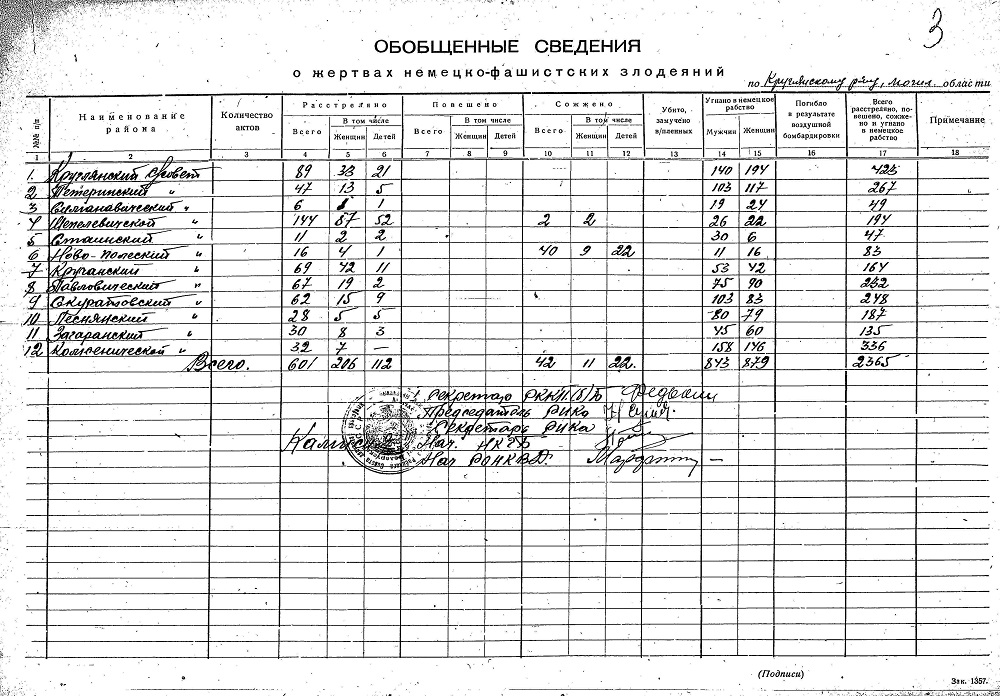 3
ОБОБЩЕННЫЕ СВЕДЕНИЯ
о жертвах немецко-фашистских злодеяний
по Круглянскому р-ну, Могил. области
№№ п/п Наименование района Количество актов Расстреляно Повешено Сожжено Убито, замучено в/пленных Угнано в немецкое рабство Погибло в результате воздушной бомбардировки Всего расстреляно, повешено, сожжено и угнано в немецкое рабство Примечание
Всего В том числе Женщин Детей Всего В том числе Женщин Детей Всего В том числе Женщин Детей Мужчин Женщин
1 2 3 4 5 6 7 8 9 10 11 12 13 14 15 16 17 18
1. Круглянский с/совет 89 33 21 140 194 423
2 Тетеринский " 47 13 5 103 117 267
3 " 6 1 19 24 49
4 Шепелевичской " 144 57 52 2 2 26 22 194
5 " 11 2 2 30 6 47
6 Ново-полеский " 16 4 1 40 9 22 11 16 83
7 Кручанский " 69 42 11 53 42 164
8 Павловический " 67 19 2 75 90 232
9 Скуратовский " 62 15 9 103 83 248
10 Леснянский " 28 5 5 80 79 187
11 Загаранский " 30 8 3 45 60 135
12 " 32 7 — 158 146 336
Всего. 601 206 112 42 11 22. 843 879 2365
Секретарь РККП(б)Б
Председатель РИКа
Секретарь РИКа
Нач. НКГБ
Нач РОНКВД.
(Подписи)
Зак. 1357.